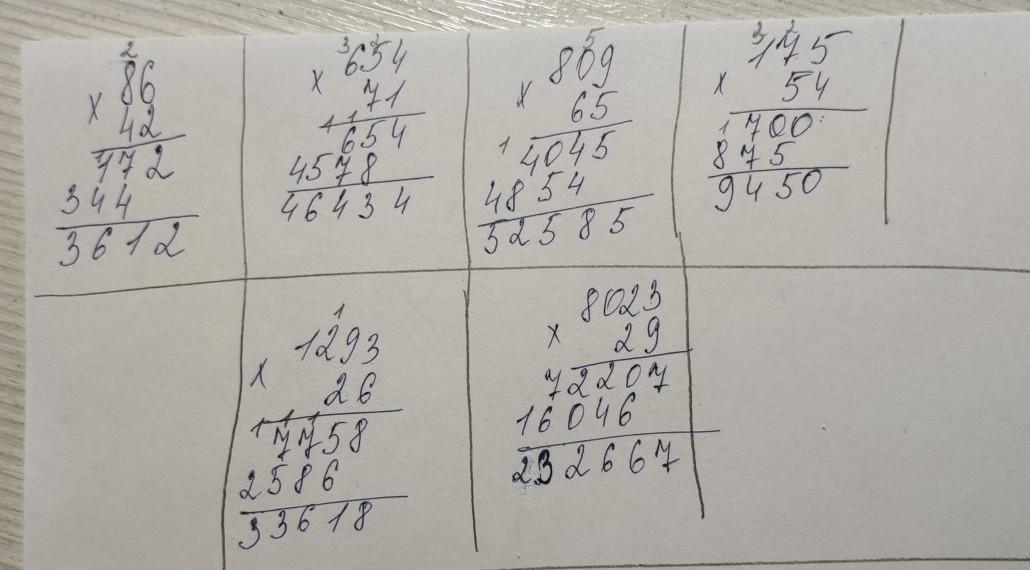 2
86
x 42
172
344
3612
3 2
654
x 71
1 1
654
4578
46434
5
809
x 65
1
4045
4854
52585
3 2
175
x 54
1
700
875
9450
1
1293
x 26
1 1 1
7758
2586
33618
8023
x 29
72207
16046
232667